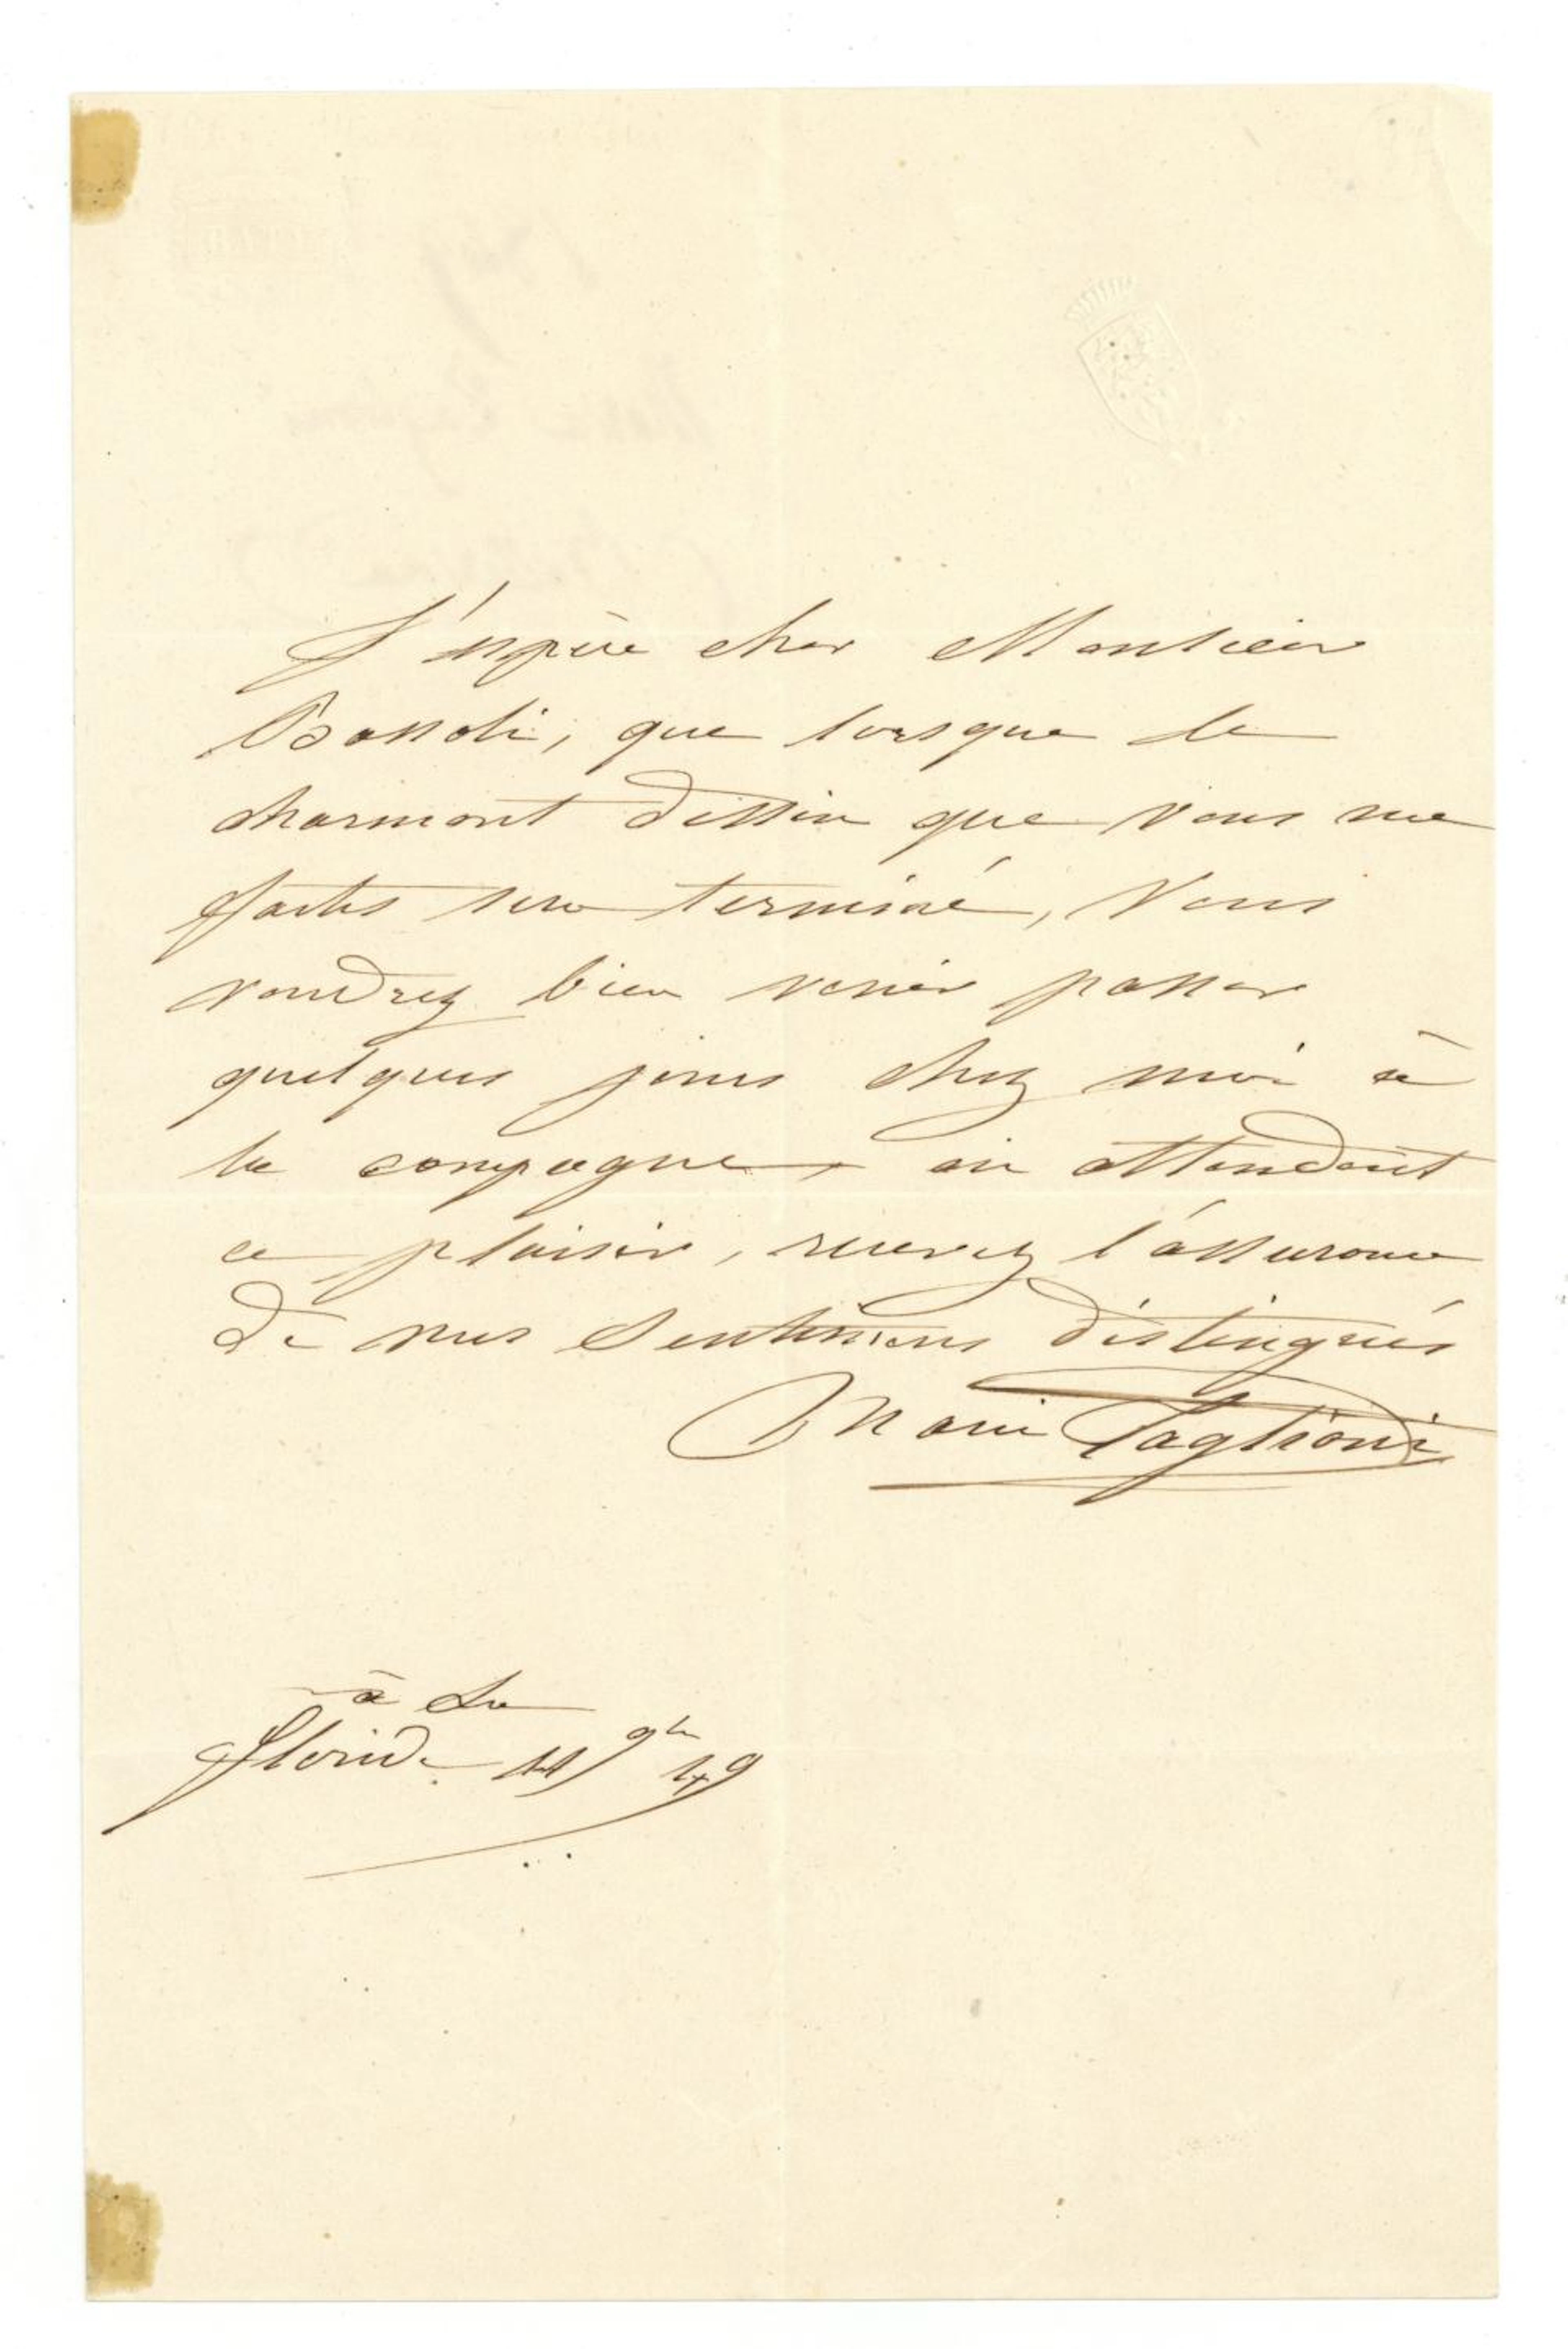 J'espère cher Monsieur
Bassoli, que lorsque le
charmant dessin que vous me
faites sera terminé, Vous
voudrez bien venir passer
quelques jours chez moi à
la campagne, en attendant
ce plaisir, recevez l'assurance
de mes Sentimens distingués
Marie Taglioni
à La
floride 11 9br 49